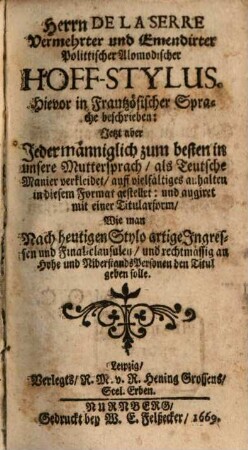 Herrn DE LA SERRE
Vermehrter und Emendirter
Polittischer Alomodischer
HOFF-STYLUS.
Hievor in Frantzösischer Spra-
che beschrieben:
Jetzt aber
Jedermänniglich zum besten in
unsere Muttersprach / als Teutsche
Manier verkleidet / auff vielfältiges anhalten
in diesem Format gestellet: und augirt
mit einer Titularform /
Wie man
Nach heutigen Stylo artige Ingres-
sen und Final-clausulen / und rechtmässig an
Hohe und Niderstands Personen den Titul
geben solle.
Leipzig /
Verlegts / R. M. v. R. Hening Grossens /
Seel. Erben.
NURNBERG /
Gedruckt bey W. E. Felßecker / 1669.